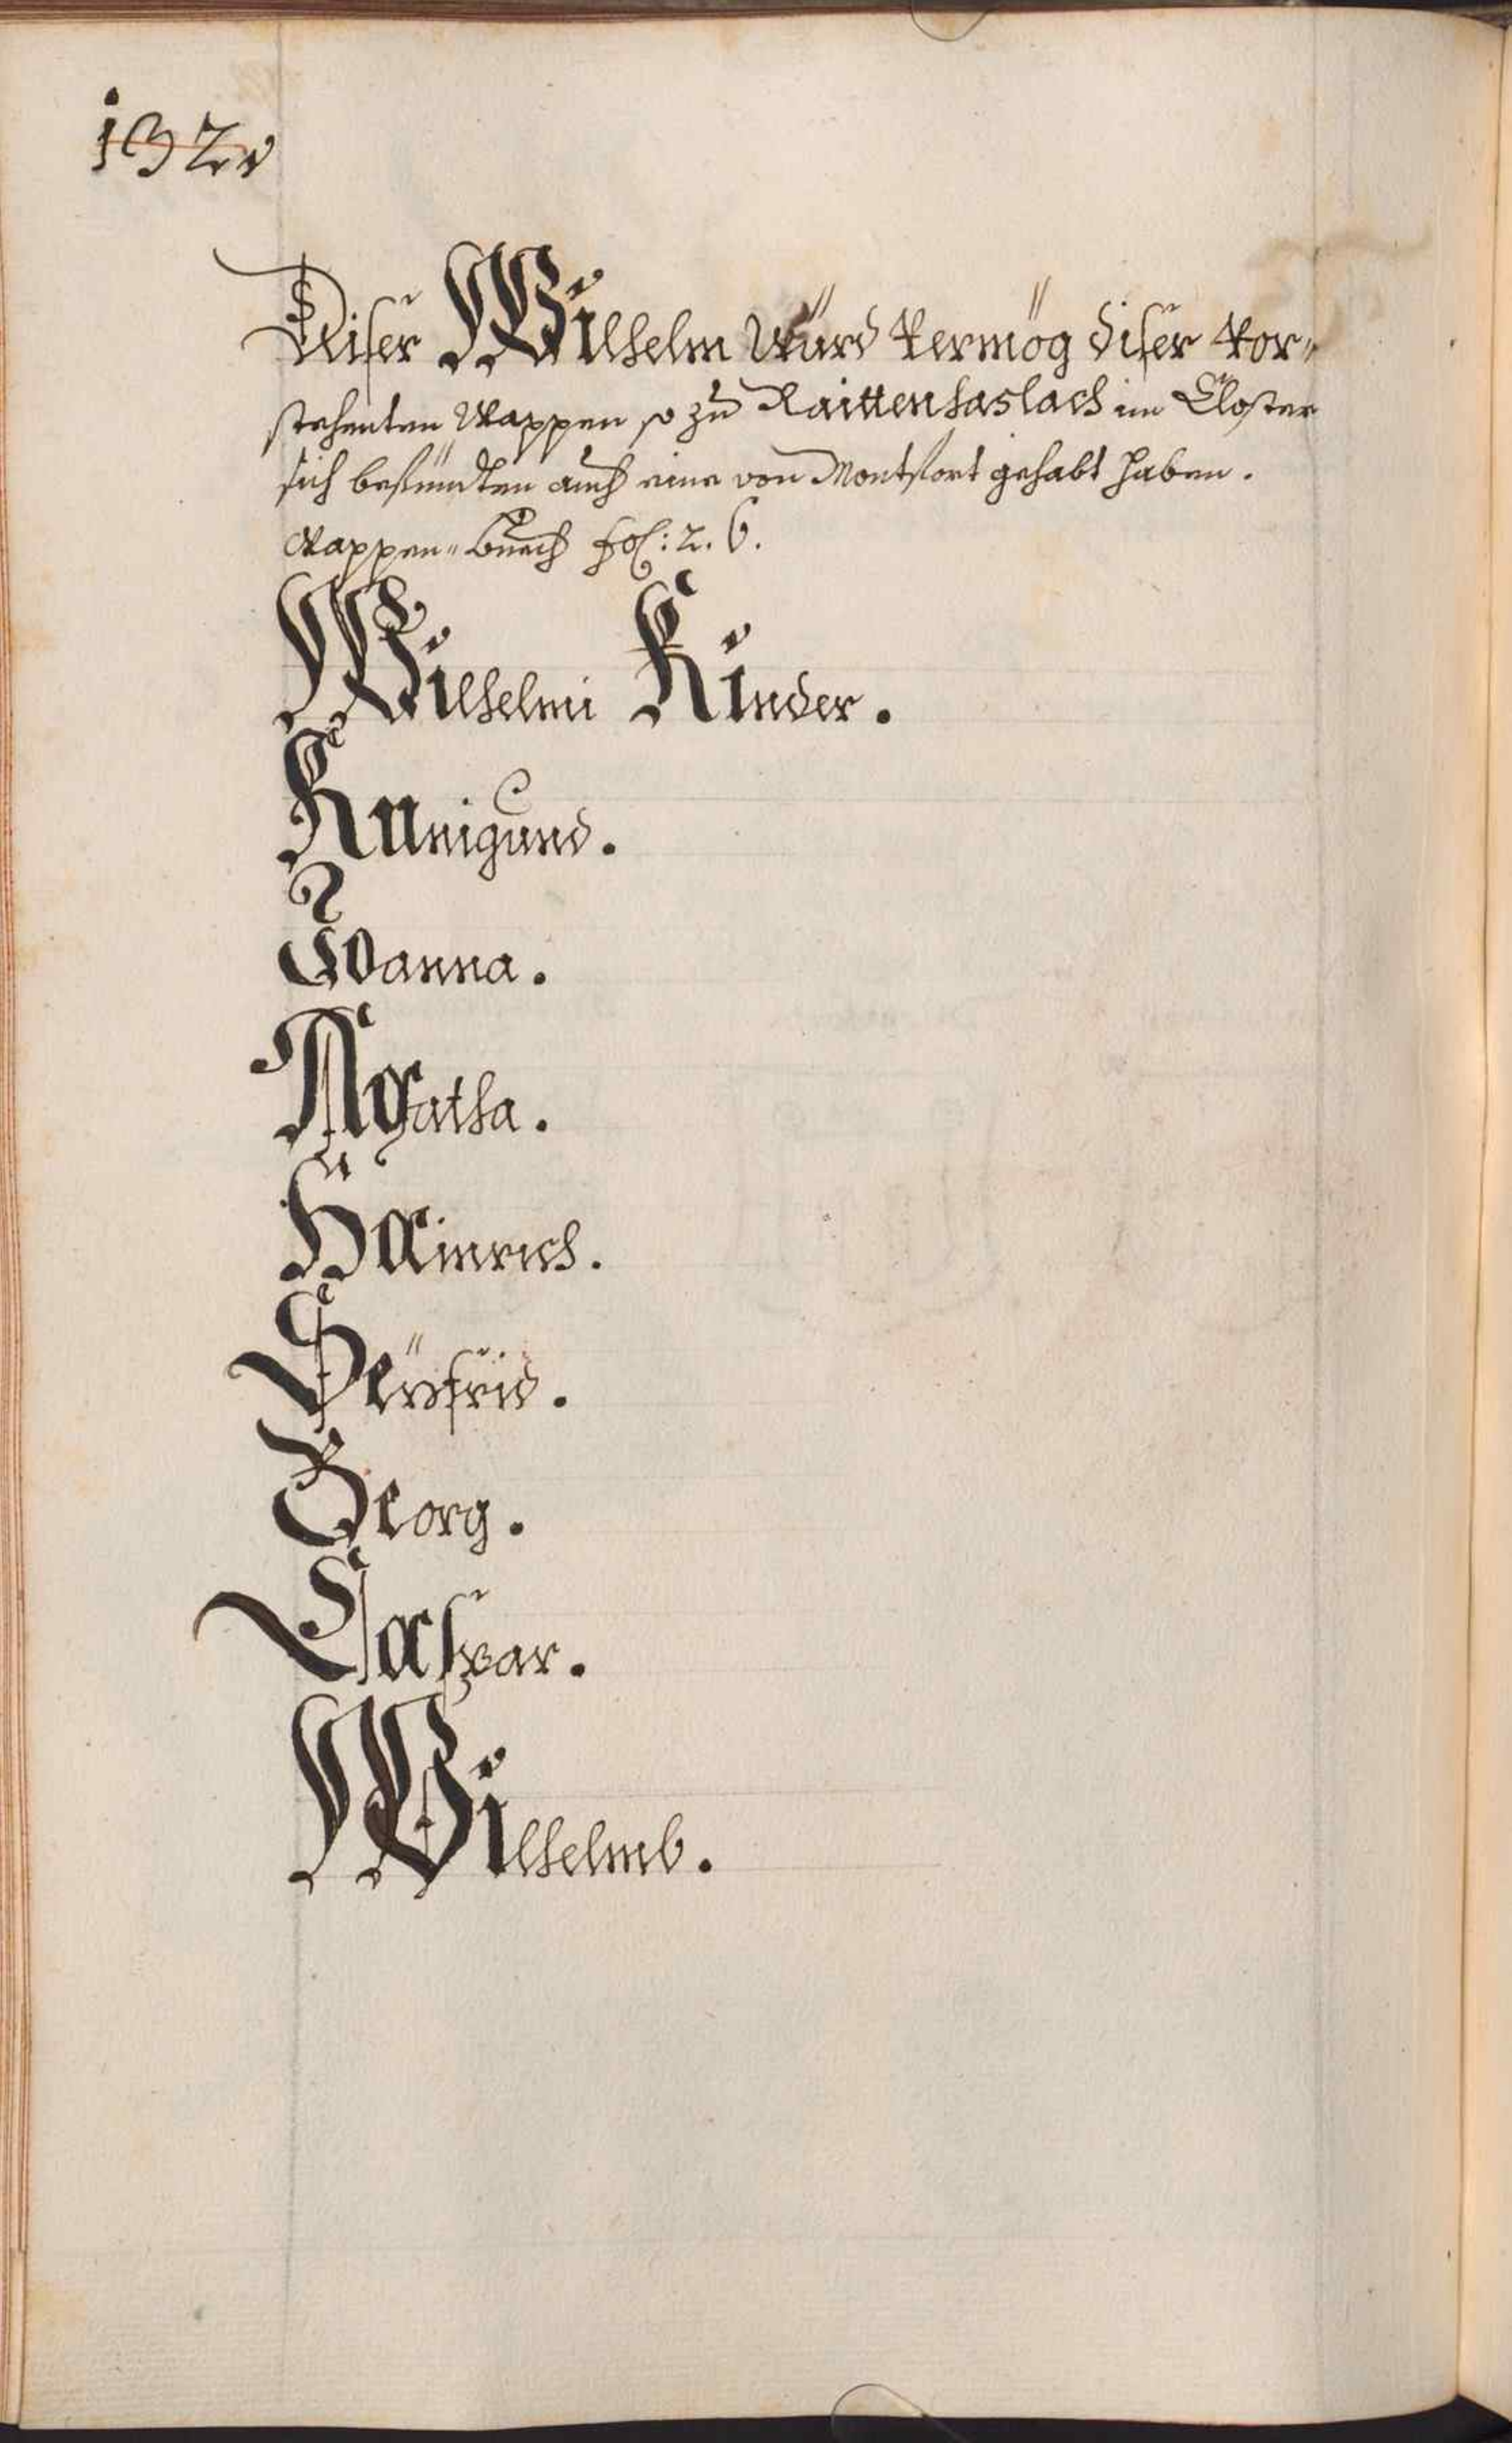 132v
Diser Wilhelm würd vermög diser vor¬
stehenten Wappen so zu Raittenhaslach im Closter
sich befündten auch eine von Montfort gehabt haben.
Wappen-buech fol: 2. 6.
Wilhelmi Kinder.
Kunigund.
Joanna.
Agatha.
Hainrich.
Seÿfrid.
Georg.
Caspar.
Wilhelmb.